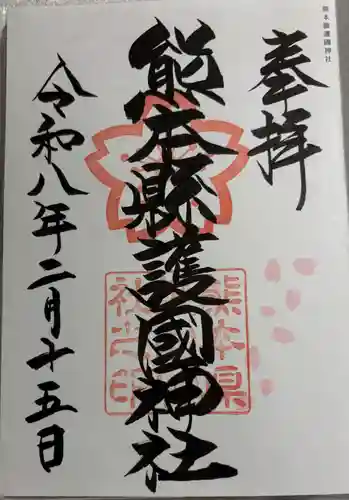 熊本縣護國神社
奉拝
熊本縣護國神社
熊本県
護国神
社之印
令和八年二月十五日